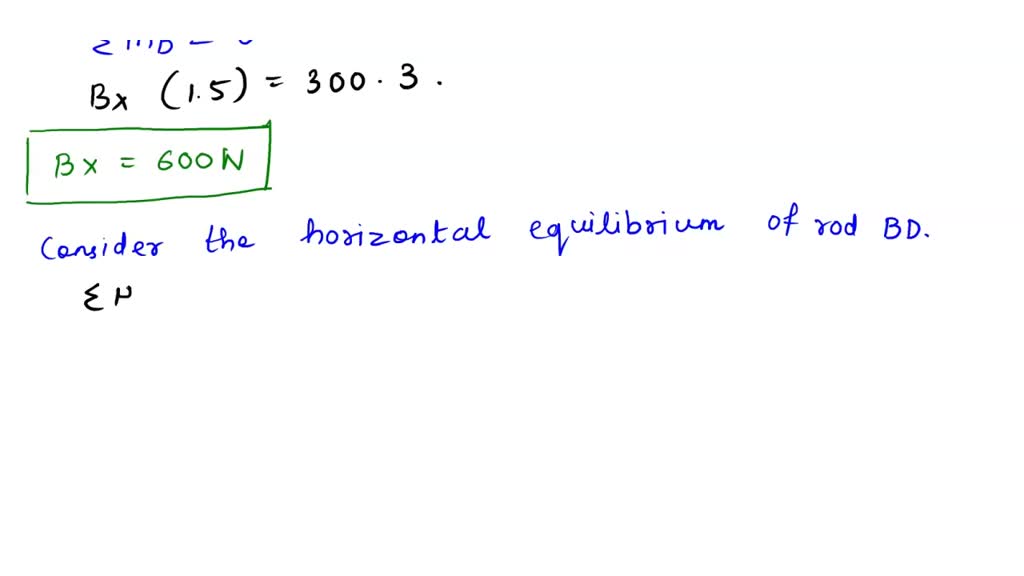 Bx (1.5) = 300 · 3 .
Bx = 600N
Consider the horizontal equilibrium of rod BD.
Σ